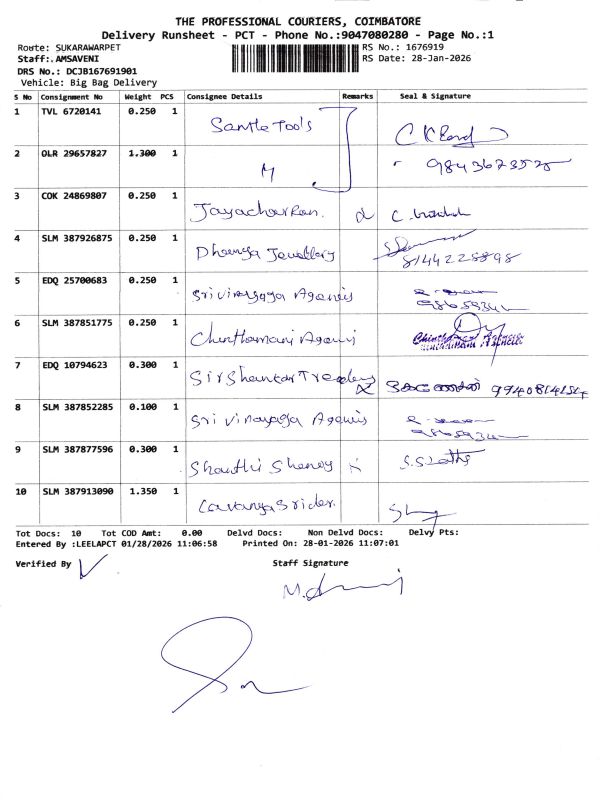 THE PROFESSIONAL COURIERS, COIMBATORE
Delivery Runsheet - PCT - Phone No.:9047080280 - Page No.:1
Route: SUKARAWARPET
RS No.: 1676919
Staff:.AMSAVENI
RS Date: 28-Jan-2026
DRS No.: DCJB167691901
Vehicle: Big Bag Delivery
S No Consignment No Weight PCS Consignee Details Remarks Seal & Signature
1 TVL 6720141 0.250 1 Santle Tools
2 OLR 29657827 1.300 1 M 9843673525
3 COK 24869807 0.250 1
4 SLM 387926875 0.250 1 Dhanya Jewellery 8144228898
5 EDQ 25700683 0.250 1 Sri vinayaga Agencis
6 SLM 387851775 0.250 1 Chinthamani Agenci Chinthamani Agencies
7 EDQ 10794623 0.300 1 Sir Shankar Traders
8 SLM 387852285 0.100 1 Sri vinayaga Agencis
9 SLM 387877596 0.300 1 Shanthi
10 SLM 387913090 1.350 1 Lavanya Srider
Tot Docs: 10 Tot COD Amt: 0.00 Delvd Docs: Non Delvd Docs: Delvy Pts:
Entered By :LEELAPCT 01/28/2026 11:06:58 Printed On: 28-01-2026 11:07:01
Verified By
Staff Signature